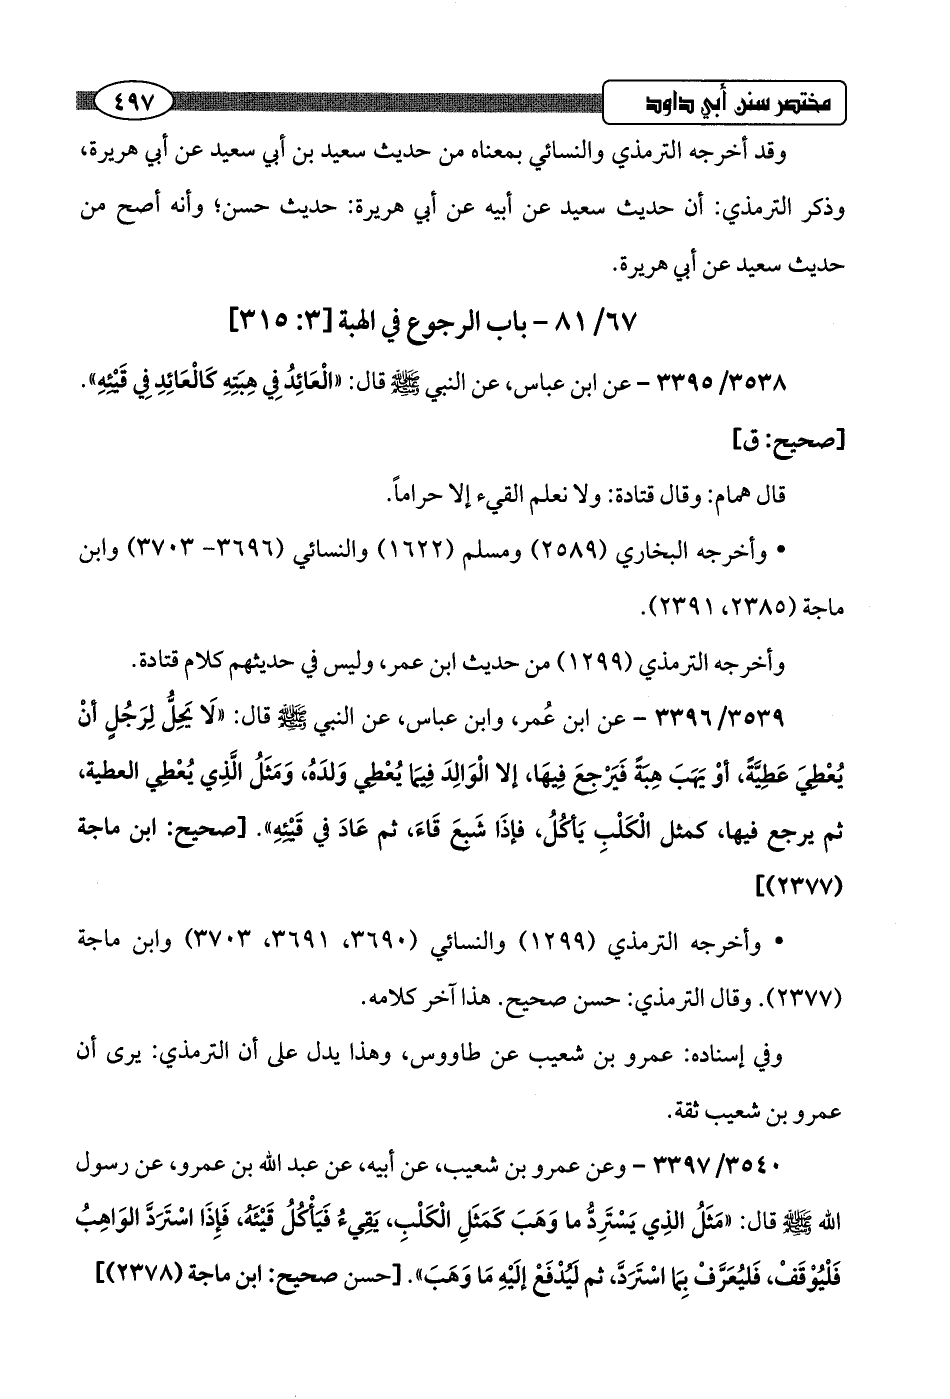 مختصر سنن أبي داود ٤٩٧
وقد أخرجه الترمذي والنسائي بمعناه من حديث سعيد بن أبي سعيد عن أبي هريرة،
وذكر الترمذي: أن حديث سعيد عن أبيه عن أبي هريرة: حديث حسن؛ وأنه أصح من
حديث سعيد عن أبي هريرة.
٦٧/ ٨١ – باب الرجوع في الهبة [٣: ٣١٥]
٣٥٣٨/ ٣٣٩٥ – عن ابن عباس، عن النبي ﷺ قال: «الْعَائِدُ فِي هِبَتِهِ كَالْعَائِدِ فِي قَيْئِهِ».
[صحيح: ق]
قال همام: وقال قتادة: ولا نعلم القيء إلا حراماً.
• وأخرجه البخاري (٢٥٨٩) ومسلم (١٦٢٢) والنسائي (٣٦٩٦– ٣٧٠٣) وابن
ماجة (٢٣٨٥، ٢٣٩١).
وأخرجه الترمذي (١٢٩٩) من حديث ابن عمر، وليس في حديثهم كلام قتادة.
٣٥٣٩/ ٣٣٩٦ – عن ابن عُمر، وابن عباس، عن النبي ﷺ قال: «لَا يَحِلُّ لِرَجُلٍ أنْ
يُعْطِيَ عَطِيَّةً، أوْ يَهَبَ هِبَةً فَيَرْجِعَ فِيهَا، إلا الْوَالِدَ فِيمَا يُعْطِي وَلدَهُ، وَمَثَلُ الَّذِي يُعْطِي العطية،
ثم يرجع فيها، كمثل الْكَلْبِ يَأكُلُ، فإذَا شَبعَ قَاءَ، ثم عَادَ في قَيْئِهِ». [صحيح: ابن ماجة
(٢٣٧٧)]
• وأخرجه الترمذي (١٢٩٩) والنسائي (٣٦٩٠، ٣٦٩١، ٣٧٠٣) وابن ماجة
(٢٣٧٧). وقال الترمذي: حسن صحيح. هذا آخر كلامه.
وفي إسناده: عمرو بن شعيب عن طاووس، وهذا يدل على أن الترمذي: يرى أن
عمرو بن شعيب ثقة.
٣٥٤٠/ ٣٣٩٧ – وعن عمرو بن شعيب، عن أبيه، عن عبد الله بن عمرو، عن رسول
الله ﷺ قال: «مَثَلُ الذي يَسْتَرِدُّ ما وَهَبَ كَمَثَلِ الْكَلْبِ، يَقِيءُ فَيَأْكُلُ قَيْئَهُ، فَإِذَا اسْتَرَدَّ الوَاهِبُ
فَلْيُوْقَفْ، فَليُعَرَّفْ بِمَا اسْتَرَدَّ، ثم لَيُدْفَعْ إلَيْهِ مَا وَهَبَ». [حسن صحيح: ابن ماجة (٢٣٧٨)]